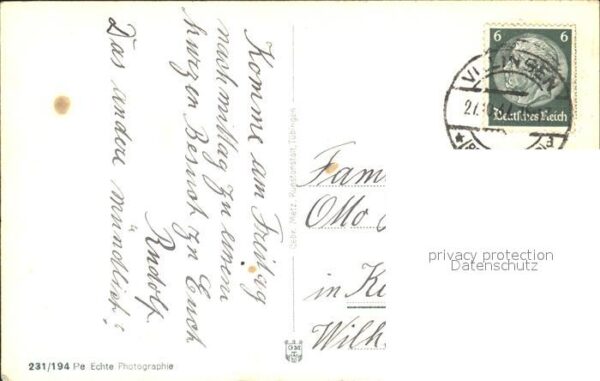 Komme am Freitag
nachmittag zu einem
kurzen Besuch zu Euch
Rudolf.
Das andere mündlich!
Gebr. Metz, Kunstanstalt, Tübingen
GM
231/194 Pe Echte Photographie
6 6
Deutsches Reich
VILLINGEN
Fam
Otto
in K
Wilh
privacy protection
Datenschutz